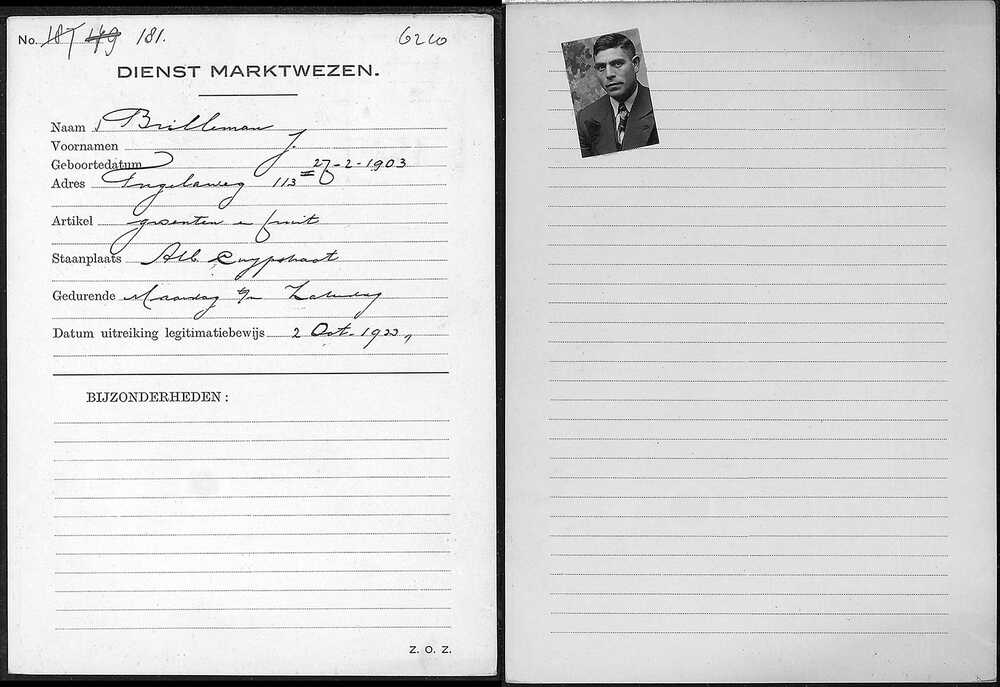 No. 187 149 181. 6200
DIENST MARKTWEZEN.
Naam Brilleman
Voornamen J.
Geboortedatum 27-2-1903
Adres Engelsweg 113
Artikel groenten en fruit
Staanplaats Alb. Cuypstraat
Gedurende Maandag t/m Zaterdag
Datum uitreiking legitimatiebewijs 2 Oct. 1933
BIJZONDERHEDEN:
Z. O. Z.